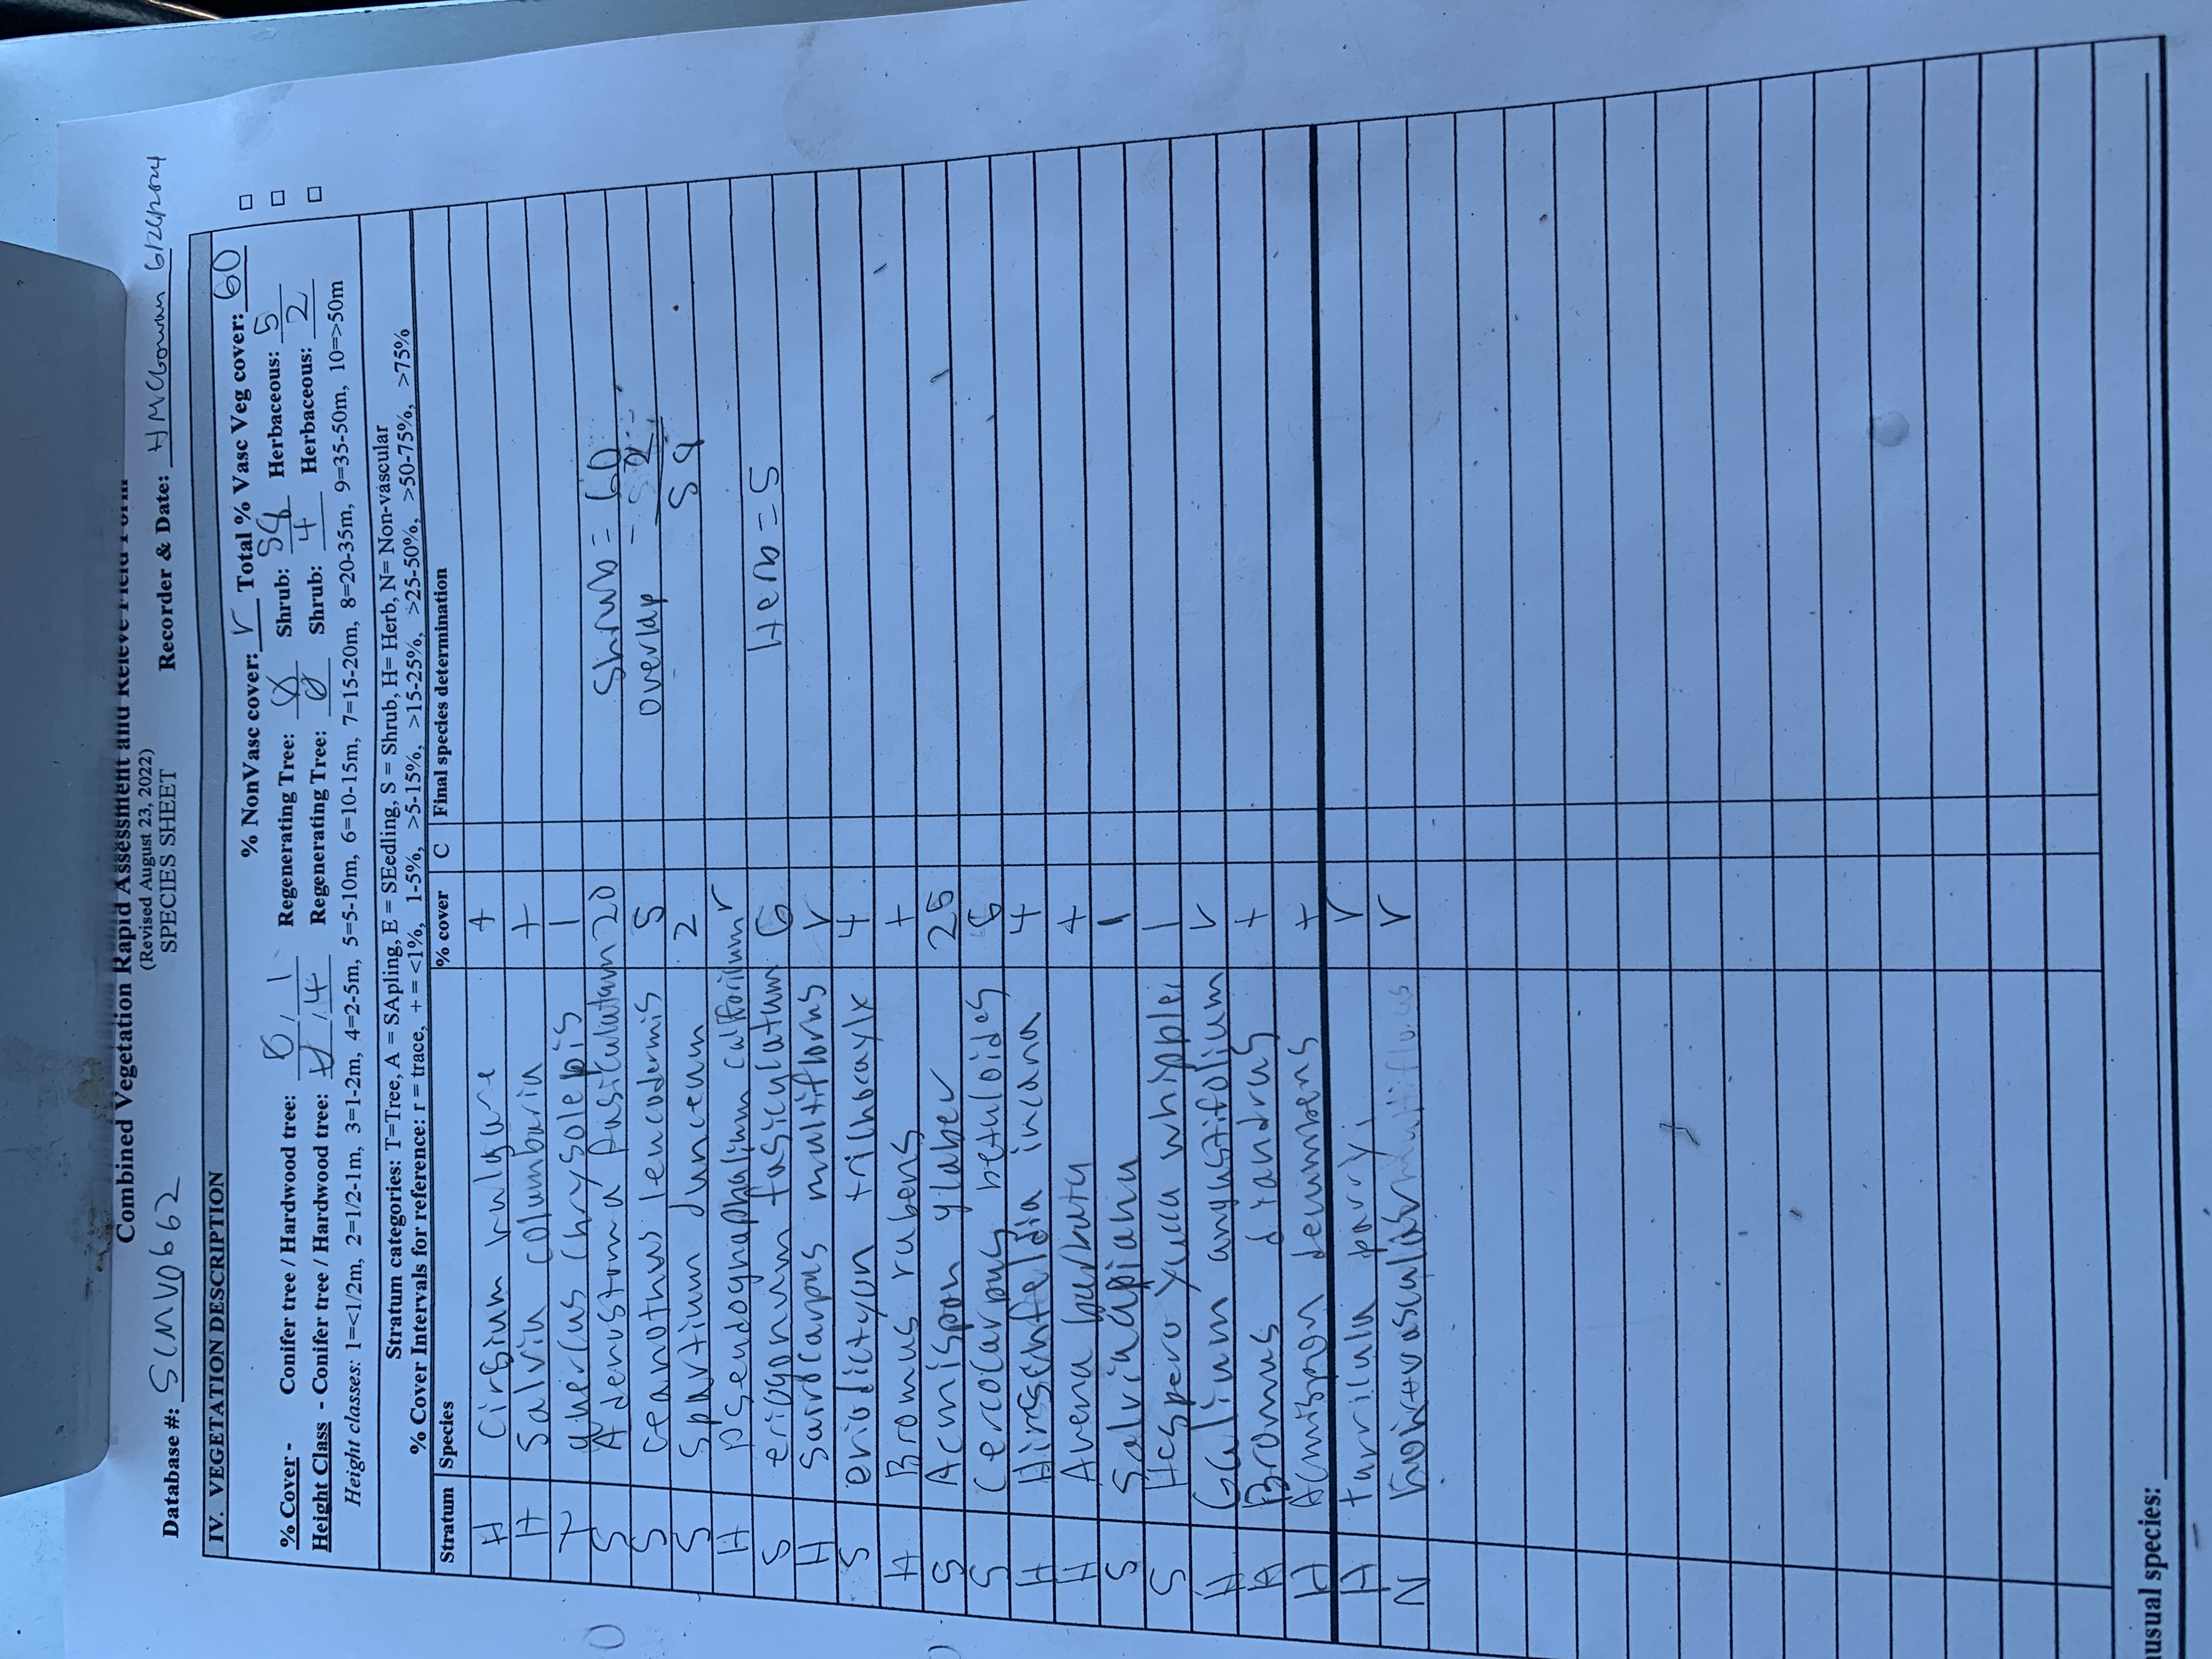 Combined Vegetation Rapid Assessment and Relevé Field Form
(Revised August 23, 2022)
SPECIES SHEET
Database #: SCMV0662 Recorder & Date: HMCGowan 6/26/2024
IV. VEGETATION DESCRIPTION
% NonVasc cover: r Total % Vasc Veg cover: 60
% Cover - Conifer tree / Hardwood tree: 0, 1 Regenerating Tree: 0 Shrub: 58 Herbaceous: 5
Height Class - Conifer tree / Hardwood tree: 0, 4 Regenerating Tree: 0 Shrub: 4 Herbaceous: 2
Height classes: 1=<1/2m, 2=1/2-1m, 3=1-2m, 4=2-5m, 5=5-10m, 6=10-15m, 7=15-20m, 8=20-35m, 9=35-50m, 10=>50m
Stratum categories: T=Tree, A = SApling, E = SEedling, S = Shrub, H= Herb, N= Non-vascular
% Cover Intervals for reference: r = trace, + = <1%, 1-5%, >5-15%, >15-25%, >25-50%, >50-75%, >75%
Stratum Species % cover C Final species determination
H Cirsium vulgare +
H Salvia columbaria +
T Quercus chrysolepis 1
S Adenostoma fasiculatum 20 Shrub = 60
S ceanothus leucodermis 5 overlap - 2
S Spartium junceum 2 58
H pseudognaphalium californium r
S eriogonum fasiculatum 6 Herb = 5
H Sairocarpus multiflorus r
S eriodictyon trichocaylx 4
H Bromus rubens +
S Acmispon glaber 25
S Cercocarpus betuloides
H Hirschfeldia incana 4
H Avena barbata +
S Salvia apiana 1
S Hesperoyucca whipplei 1
H Galium angustifolium r
H Bromus diandrus +
H Acmispon decumbens +
H turricula parryi r
N Nonvascular r
usual species: